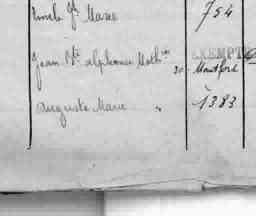 Emile Jh Marie 754
Jean Bte alphonse Math
EXEMPT
20 Montfort
auguste Marie " 1383